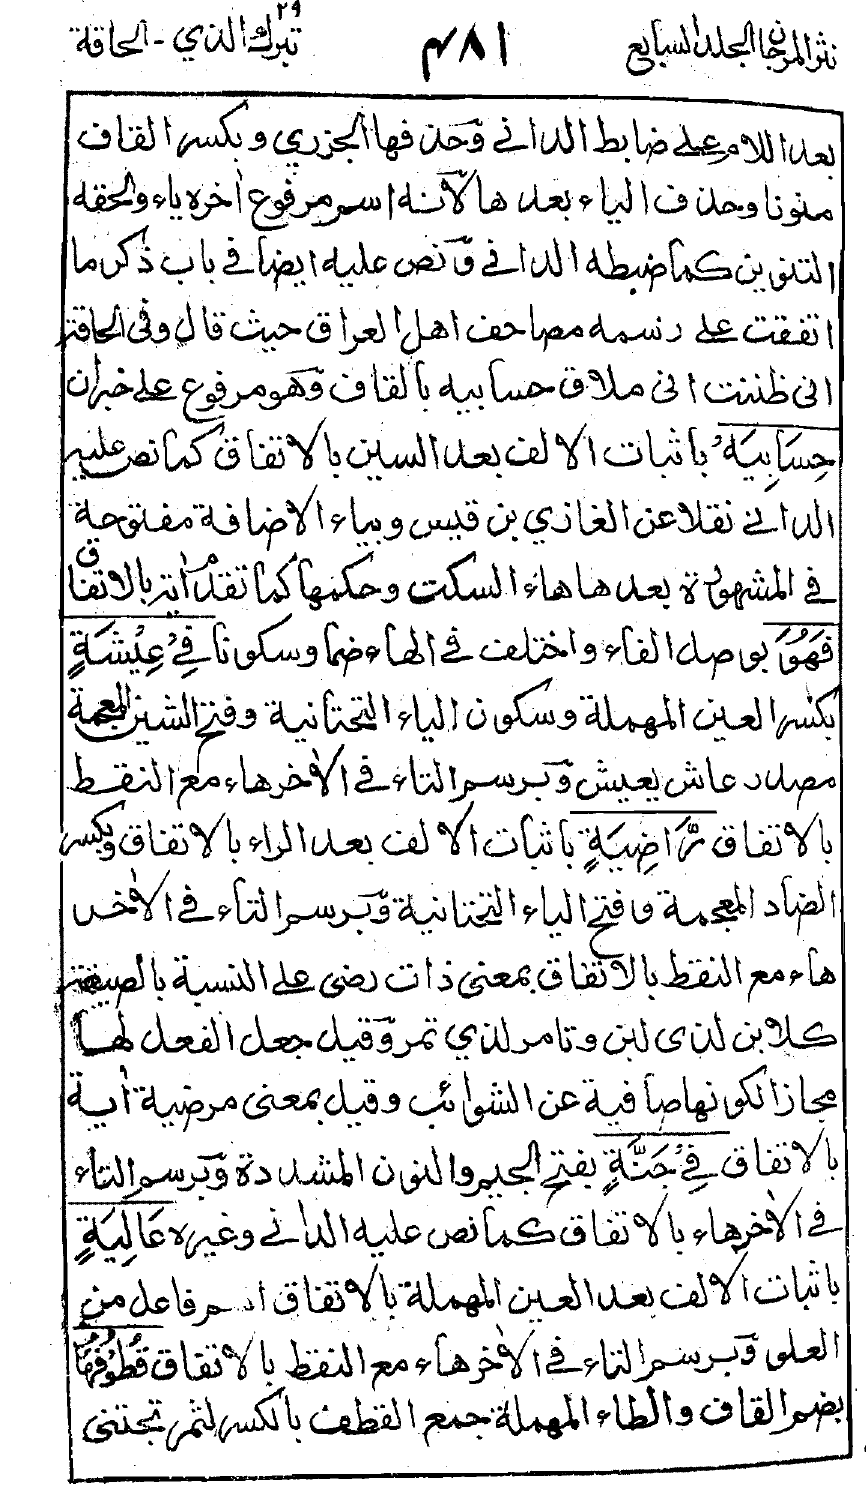 نثر المرجان المجلد السابع
٤٨١
تبرك الذي ٢٩ - الحاقة
بعد اللام على ضابط الداني وحذفها الجزري وبكسر القاف
منونا وحذف الياء بعدها لانه اسم مرفوع اخره ياء والحقه
التنوين كما ضبطه الداني ونص عليه ايضا في باب ذكر ما
اتفقت على رسمه مصاحف اهل العراق حيث قال وفي الحاقة
اني ظننت اني ملاق حسابيه بالقاف وهو مرفوع على خبر ان
حِسَابِيَهْ باثبات الالف بعد السين بالاتفاق كما نص عليه
الداني نقلا عن الغازي بن قيس وبياء الاضافة مفتوحة
في المشهورة بعدها هاء السكت وحكمها كما تقدم اٰية بالاتفاق
فَهُوَ بوصل الفاء واختلف في الهاء ضما وسكونا فِيْ عِيْشَةٍ
بكسر العين المهملة وسكون الياء التحتانية وفتح الشين المعجمة
مصدر عاش يعيش وبرسم التاء في الاٰخر هاء مع النقط
بالاتفاق رَّاضِيَةٍ باثبات الالف بعد الراء بالاتفاق وبكسر
الضاد المعجمة وفتح الياء التحتانية وبرسم التاء في الاٰخر
هاء مع النقط بالاتفاق بمعنى ذات رضى على النسبة بالصيغة
كلابن لذى لبن وتامر لذي تمر وقيل جعل الفعل لها
مجازا لكونها صافية عن الشوائب وقيل بمعنى مرضية اٰية
بالاتفاق فِيْ جَنَّةٍ بفتح الجيم والنون المشددة وبرسم التاء
في الاٰخر هاء بالاتفاق كما نص عليه الداني وغيره عَالِيَةٍ
باثبات الالف بعد العين المهملة بالاتفاق اسم فاعل من
العلو وبرسم التاء في الاٰخر هاء مع النقط بالاتفاق قُطُوْفُهَا
بضم القاف والطاء المهملة جمع القطف بالكسر لثمر تجتنى